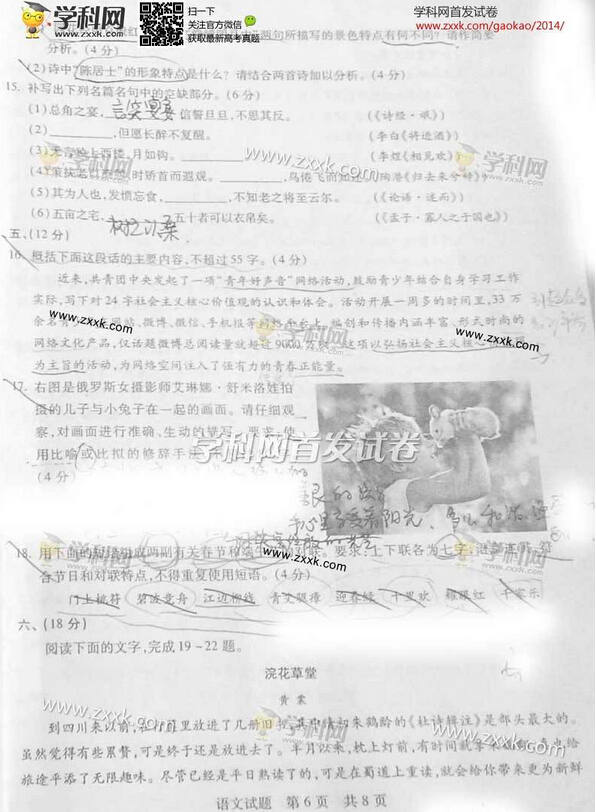 扫一扫
关注官方微信
获取最新高考真题
学科网首发试卷
www.zxxk.com/gaokao/2014/
两句所描写的景色特点有何不同？请作简要
分析。(4 分)
(2)诗中“陈居士”的形象特点是什么？请结合两首诗加以分析。(4 分)
15. 补写出下列名篇名句中的空缺部分。(6 分)
(1)总角之宴,言笑晏晏 信誓旦旦,不思其反。 (《诗经·氓》)
(2)____________,但愿长醉不复醒。 (李白《将进酒》)
(3)无言独上西楼,月如钩。____________ (李煜《相见欢》)
(4)策扶老以流憩,时矫首而遐观。____________,鸟倦飞而知还。(陶潜《归去来兮辞》)
(5)其为人也,发愤忘食,____________,不知老之将至云尔。 (《论语·述而》)
(6)五亩之宅,树之以桑 五十者可以衣帛矣。 (《孟子·寡人之于国也》)
五、(12 分)
16. 概括下面这段话的主要内容,不超过 55 字。(4 分)
近来,共青团中央发起了一项“青年好声音”网络活动,鼓励青少年结合自身学习工作
实际,写下对 24 字社会主义核心价值观的认识和体会。活动开展一周多的时间里,33 万
余名青 网站、微博、微信、手机报等 编创和传播内涵丰富、形式时尚的
网络文化产品,仅话题微博总阅读量就超过 9000 这项以弘扬社会主义核心
为主旨的活动,为网络空间注入了强有力的青春正能量。
17. 右图是俄罗斯女摄影师艾琳娜·舒米洛娃拍
摄的儿子与小兔子在一起的画面。请仔细观
察,对画面进行准确、生动的描写。要求:使
用比喻或比拟的修辞手法
(4 分)
18. 用下面的短语组成两副有关春节和端午 对联。要求:上下联各为七字,
合节日和对联特点,不得重复使用短语。(4 分)
门上桃符 碧波竞舟 江边柳线 青艾驱瘴 迎春绿 千里欢 耀眼红 千家乐
六、(18 分)
阅读下面的文字,完成 19～22 题。
浣花草堂
黄裳
到四川来以前,在行囊里放进了几册旧书,其中清初朱鹤龄的《杜诗辑注》是部头最大的。
虽然觉得有些累赘,可是终于还是放进去了。半月以来,枕上灯前,有时间就拿
旅途平添了无限趣味。尽管已经是平日熟读了的,可是在蜀道上重读,就会给你带来更为新鲜
语文试题 第 6 页 共 8 页
学科网
www.zxxk.com
学科网首发试卷